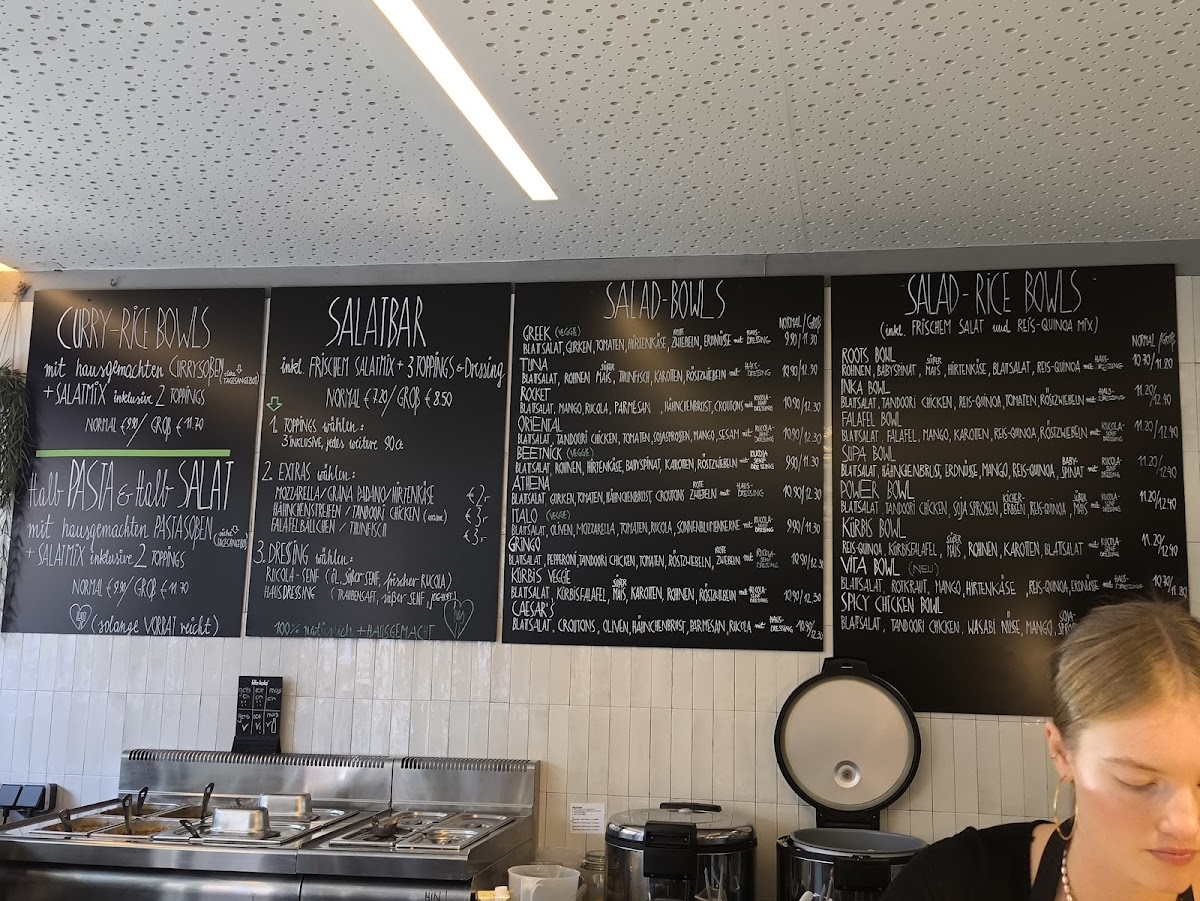 CURRY-RICE BOWLS
mit hausgemachten CURRYSOßEN (siehe TAGESANGEBOT)
+ SALATMIX inklusive 2 TOPPINGS
NORMAL € 9.90 / GROß € 11.70
Halb PASTA & Halb SALAT
mit hausgemachten PASTASOßEN
+ SALATMIX inklusive 2 TOPPINGS
NORMAL € 9.90 / GROß € 11.70
(solange VORRAT reicht)
SALATBAR
inkl. FRISCHEM SALATMIX + 3 TOPPINGS & Dressing
NORMAL € 7.20 / GROß € 8.50
1. TOPPINGS wählen:
3 INCLUSIVE, jedes weitere 90ct
2. EXTRAS wählen:
MOZZARELLA / GRANA PADANO / HIRTENKÄSE € 2,-
HÄHNCHENSTREIFEN / TANDOORI CHICKEN (warm) € 3,-
FALAFELBÄLLCHEN / THUNFISCH € 3,-
3. DRESSING wählen:
RUCOLA-SENF (Öl, süßer SENF, frischer RUCOLA)
HAUSDRESSING (TRAUBENSAFT, süßer SENF, JOGHURT)
100% natürlich + HAUSGEMACHT
SALAD-BOWLS
NORMAL / GROß
GREEK (VEGGIE)
BLATSALAT, GURKEN, TOMATEN, HIRTENKÄSE, ROTE ZWIEBELN, ERDNÜSSE mit HAUS-DRESSING 9.90/11.30
TUNA
BLATSALAT, ROHNEN, MAIS, THUNFISCH, KAROTTEN, RÖSTZWIEBELN mit HAUS-DRESSING 10.90/12.30
ROCKET
BLATSALAT, MANGO, RUCOLA, PARMESAN, HÄHNCHENBRUST, CROUTONS mit RUCOLA-SENF DRESSING 10.90/12.30
ORIENTAL
BLATSALAT, TANDOORI CHICKEN, TOMATEN, SOJASPROßEN, MANGO, SESAM mit RUCOLA-SENF DRESSING 10.90/12.30
BEETNICK (VEGGIE)
BLATSALAT, ROHNEN, HIRTENKÄSE, BABYSPINAT, KAROTTEN, RÖSTZWIEBELN mit RUCOLA-SENF DRESSING 9.90/11.30
ATHENA
BLATSALAT, GURKEN, TOMATEN, HÄHNCHENBRUST, CROUTONS ROTE ZWIEBELN mit HAUS-DRESSING 10.90/12.30
ITALO (VEGGIE)
BLATSALAT, OLIVEN, MOZZARELLA, TOMATEN, RUCOLA, SONNENBLUMENKERNE mit RUCOLA-SENF DRESSING 9.90/11.30
GRINGO
BLATSALAT, PEPPERONI, TANDOORI CHICKEN, TOMATEN, RÖSTZWIEBELN, ROTE ZWIEBELN mit RUCOLA-SENF DRESSING 10.90/12.30
KÜRBIS VEGGIE
BLATSALAT, KÜRBISFALAFEL, SÜßER MAIS, KAROTTEN, ROHNEN, RÖSTZWIEBELN mit RUCOLA-SENF DRESSING 10.90/12.30
CAESAR'S
BLATSALAT, CROUTONS, OLIVEN, HÄHNCHENBRUST, PARMESAN, RUCOLA mit HAUS-DRESSING 10.90/12.30
SALAD-RICE BOWLS
(inkl. FRISCHEM SALAT und REIS-QUINOA MIX)
NORMAL / GROß
ROOTS BOWL
ROHNEN, BABYSPINAT, SÜßER MAIS, HIRTENKÄSE, BLATSALAT, REIS-QUINOA mit HAUS-DRESSING 10.30/11.20
INKA BOWL
BLATSALAT, TANDOORI CHICKEN, REIS-QUINOA, TOMATEN, RÖSTZWIEBELN mit HAUS-DRESSING 11.20/12.40
FALAFEL BOWL
BLATSALAT, FALAFEL, MANGO, KAROTEN, REIS-QUINOA, RÖSTZWIEBELN mit RUCOLA-SENF DRESSING 11.20/12.40
SUPA BOWL
BLATSALAT, HÄHNCHENBRUST, ERDNÜSSE, MANGO, REIS-QUINOA, BABY-SPINAT mit RUCOLA-SENF DRESSING 11.20/12.40
POWER BOWL
BLATSALAT, TANDOORI CHICKEN, SOJASPROSEN, KICHER-ERBSEN, REIS-QUINOA, SÜßER MAIS mit RUCOLA-SENF DRESSING 11.20/12.40
KÜRBIS BOWL
REIS-QUINOA, KÜRBISFALAFEL, SÜßER MAIS, ROHNEN, KAROTTEN, BLATSALAT mit RUCOLA-SENF DRESSING 11.20/12.40
VITA BOWL (NEU)
BLATSALAT, ROTKRAUT, MANGO, HIRTENKÄSE, REIS-QUINOA, ERDNÜSSE mit HAUS-DRESSING 10.30/11.80
SPICY CHICKEN BOWL
BLATSALAT, TANDOORI CHICKEN, WASABI NÜSSE, MANGO,